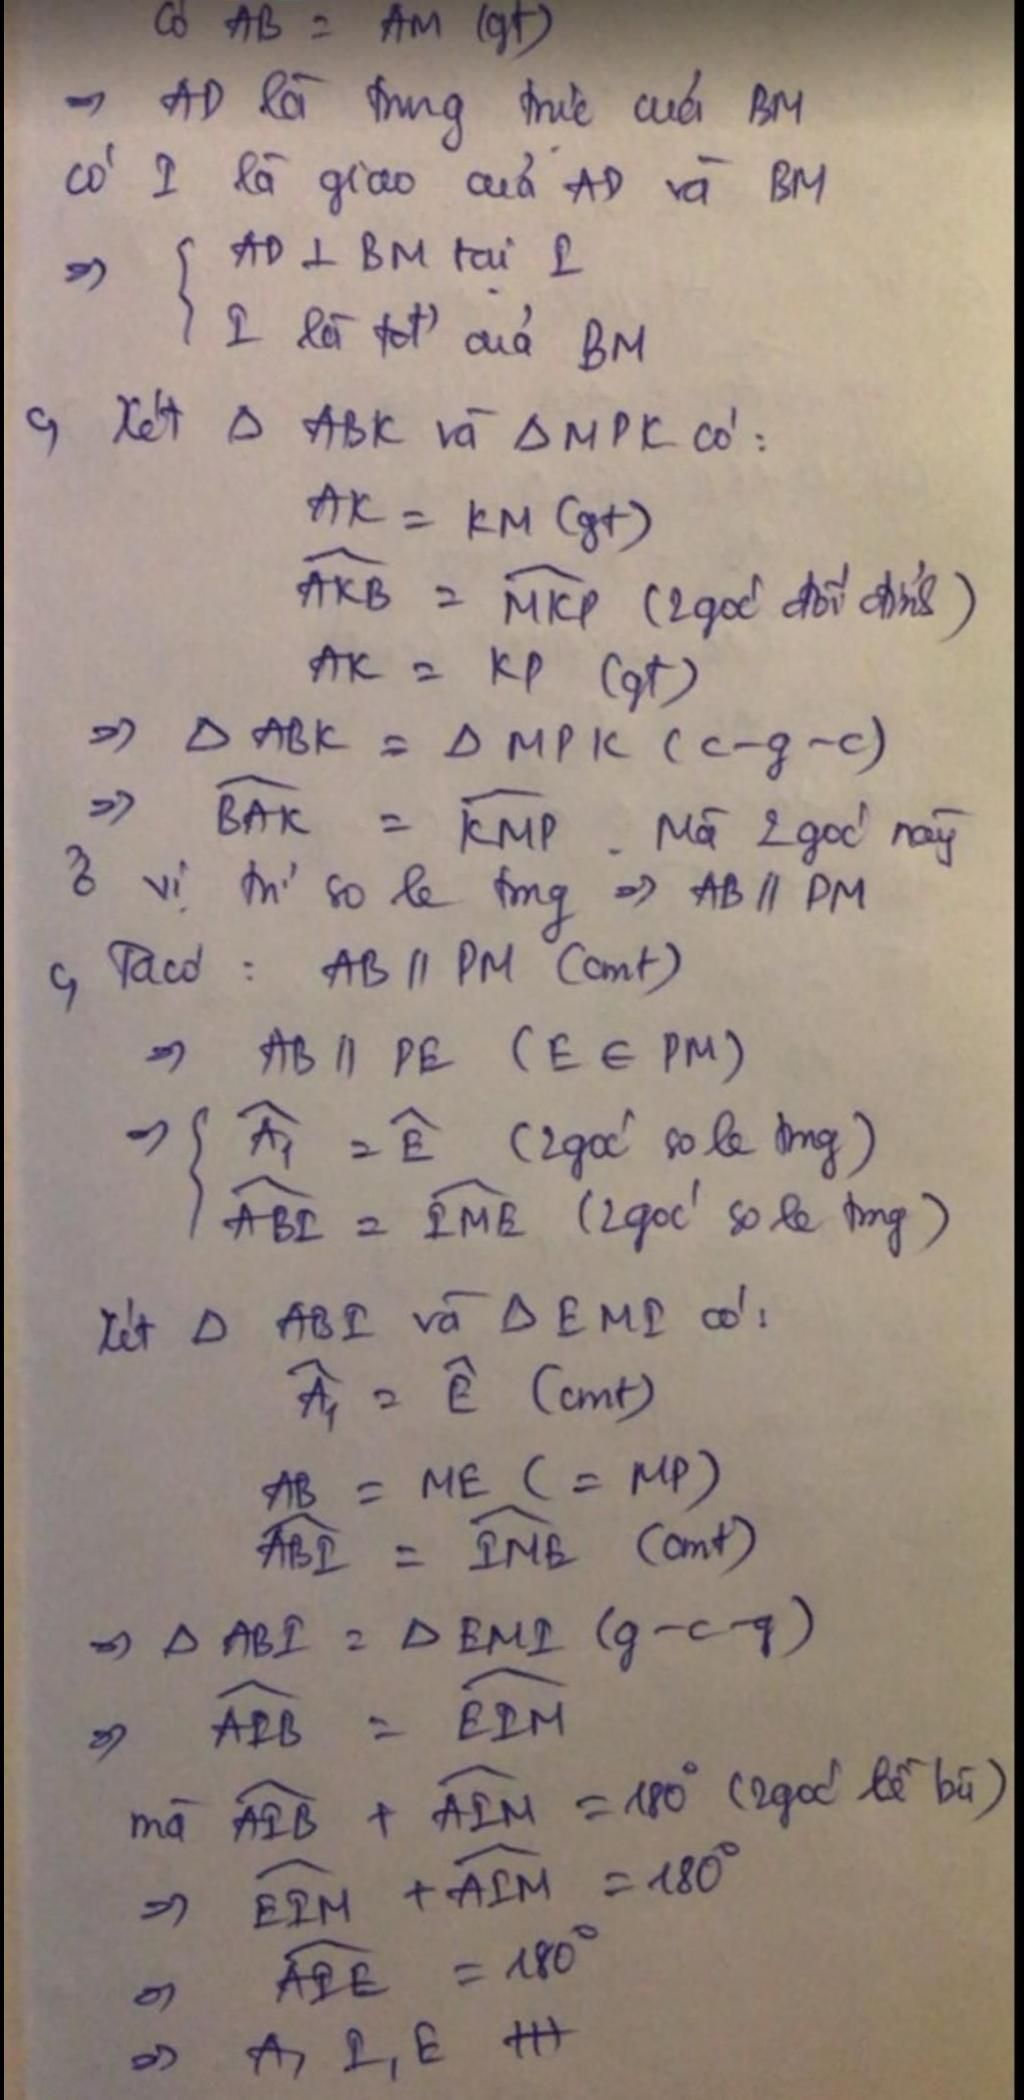 Có AB = AM (gt)
=> AD là trung trực của BM
có I là giao của AD và BM
=> { AD ⊥ BM tại I
I là tđ' của BM
c, Xét Δ ABK và Δ MPK có:
AK = KM (gt)
\widehat{AKB} = \widehat{MKP} (2 góc đối đỉnh)
AK = KP (gt)
=> Δ ABK = Δ MPK (c-g-c)
=> \widehat{BAK} = \widehat{KMP}. Mà 2 góc này
ở vị trí so le trong => AB // PM
c, Ta có: AB // PM (cmt)
=> AB // PE (E ∈ PM)
=> { \widehat{A_1} = \widehat{E} (2 góc so le trong)
\widehat{ABI} = \widehat{IME} (2 góc so le trong)
Xét Δ ABI và Δ EMI có:
\widehat{A_1} = \widehat{E} (cmt)
AB = ME (= MP)
\widehat{ABI} = \widehat{IME} (cmt)
=> Δ ABI = Δ EMI (g-c-g)
=> \widehat{AIB} = \widehat{EIM}
mà \widehat{AIB} + \widehat{AIM} = 180° (2 góc kề bù)
=> \widehat{EIM} + \widehat{AIM} = 180°
=> \widehat{AIE} = 180°
=> A, I, E